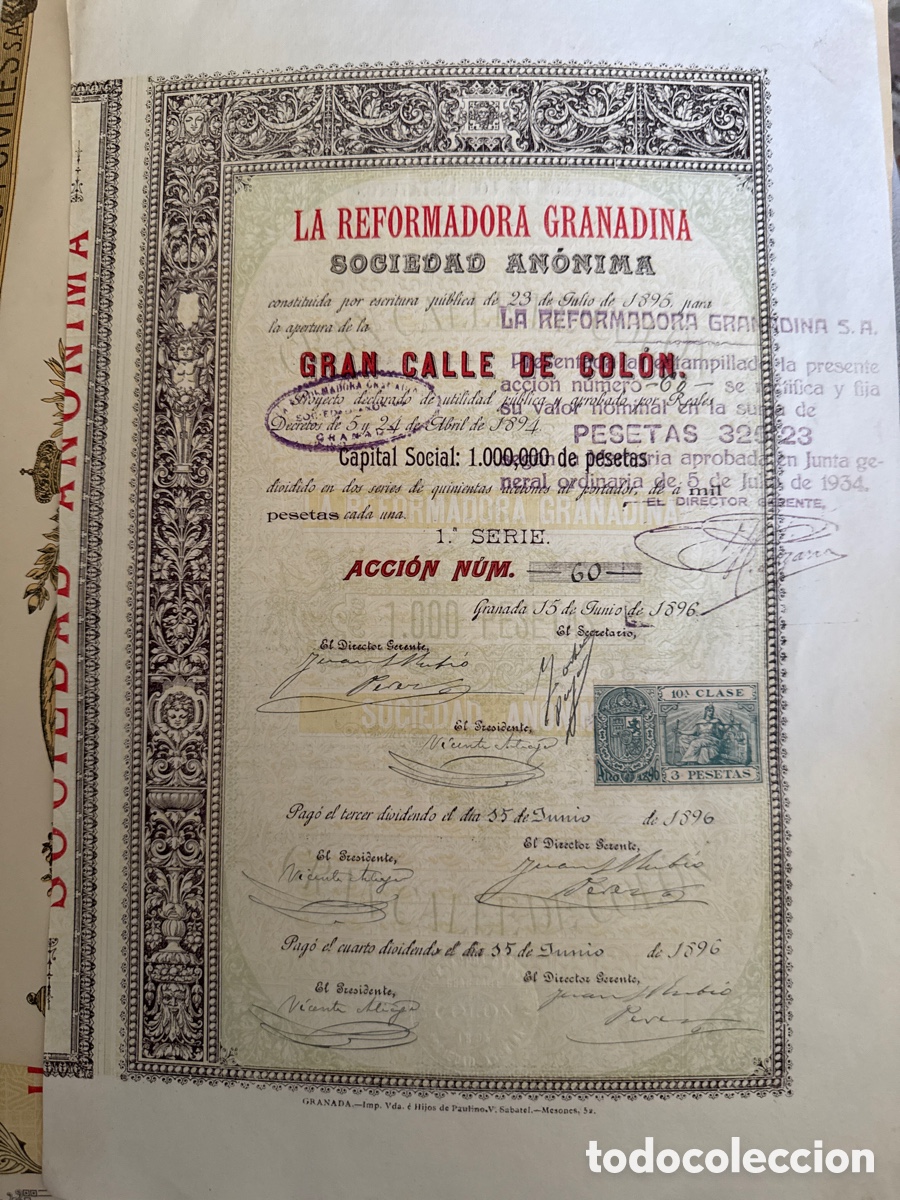 CIVILES S.A.
SOCIEDAD ANÓNIMA
LA REFORMADORA GRANADINA
SOCIEDAD ANÓNIMA
constituida por escritura pública de 23 de Julio de 1895, para
la apertura de la
GRAN CALLE DE COLÓN.
Proyecto declarado de utilidad pública y aprobado por Reales
Decretos de 5 y 24 de Abril de 1894.
Capital Social: 1.000,000 de pesetas
dividido en dos series de quinientas acciones al portador, de a mil
pesetas cada una.
LA REFORMADORA GRANADINA S. A.
Presentada estampillada la presente
acción número -60- se rectifica y fija
su valor nominal en la suma de
PESETAS 23
aprobada en Junta ge-
neral ordinaria de 5 de de 1934.
EL DIRECTOR GERENTE,
REFORMADORA GRANADINA
SOCIEDAD
GRANADA
FORMADORA GRANADINA
1.ª SERIE.
ACCIÓN NÚM. —60—
Granada 15 de Junio de 1896
1.000 PESE
El Director Gerente,
El Secretario,
Juan L Rubio
Perez
SOCIEDAD ANÓNIM
El Presidente,
Vicente Arteaga
10.A CLASE
AÑO 1896
3 PESETAS
Pagó el tercer dividendo el día 15 de Junio de 1896
El Presidente,
El Director Gerente,
Vicente Arteaga
Juan L Rubio
Perez
CALLE DE COLÓN
Pagó el cuarto dividendo el día 15 de Junio de 1896
El Presidente,
El Director Gerente,
Vicente Arteaga
Juan L Rubio
Perez
COLÓN
GRANADA.—Imp. Vda. é Hijos de Paulino V. Sabatel.—Mesones, 52.
todocoleccion